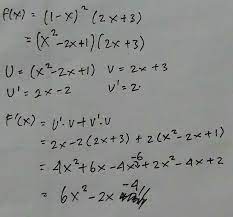 f(x) = (1-x)² (2x+3)
= (x²-2x+1)(2x+3)
U = (x²-2x+1) V = 2x+3
U' = 2x-2 V' = 2.
F'(x) = U'·V + V'·U
= 2x-2(2x+3) + 2(x²-2x+1)
= 4x²+6x-4x-6+2x²-4x+2
= 6x²-2x-4